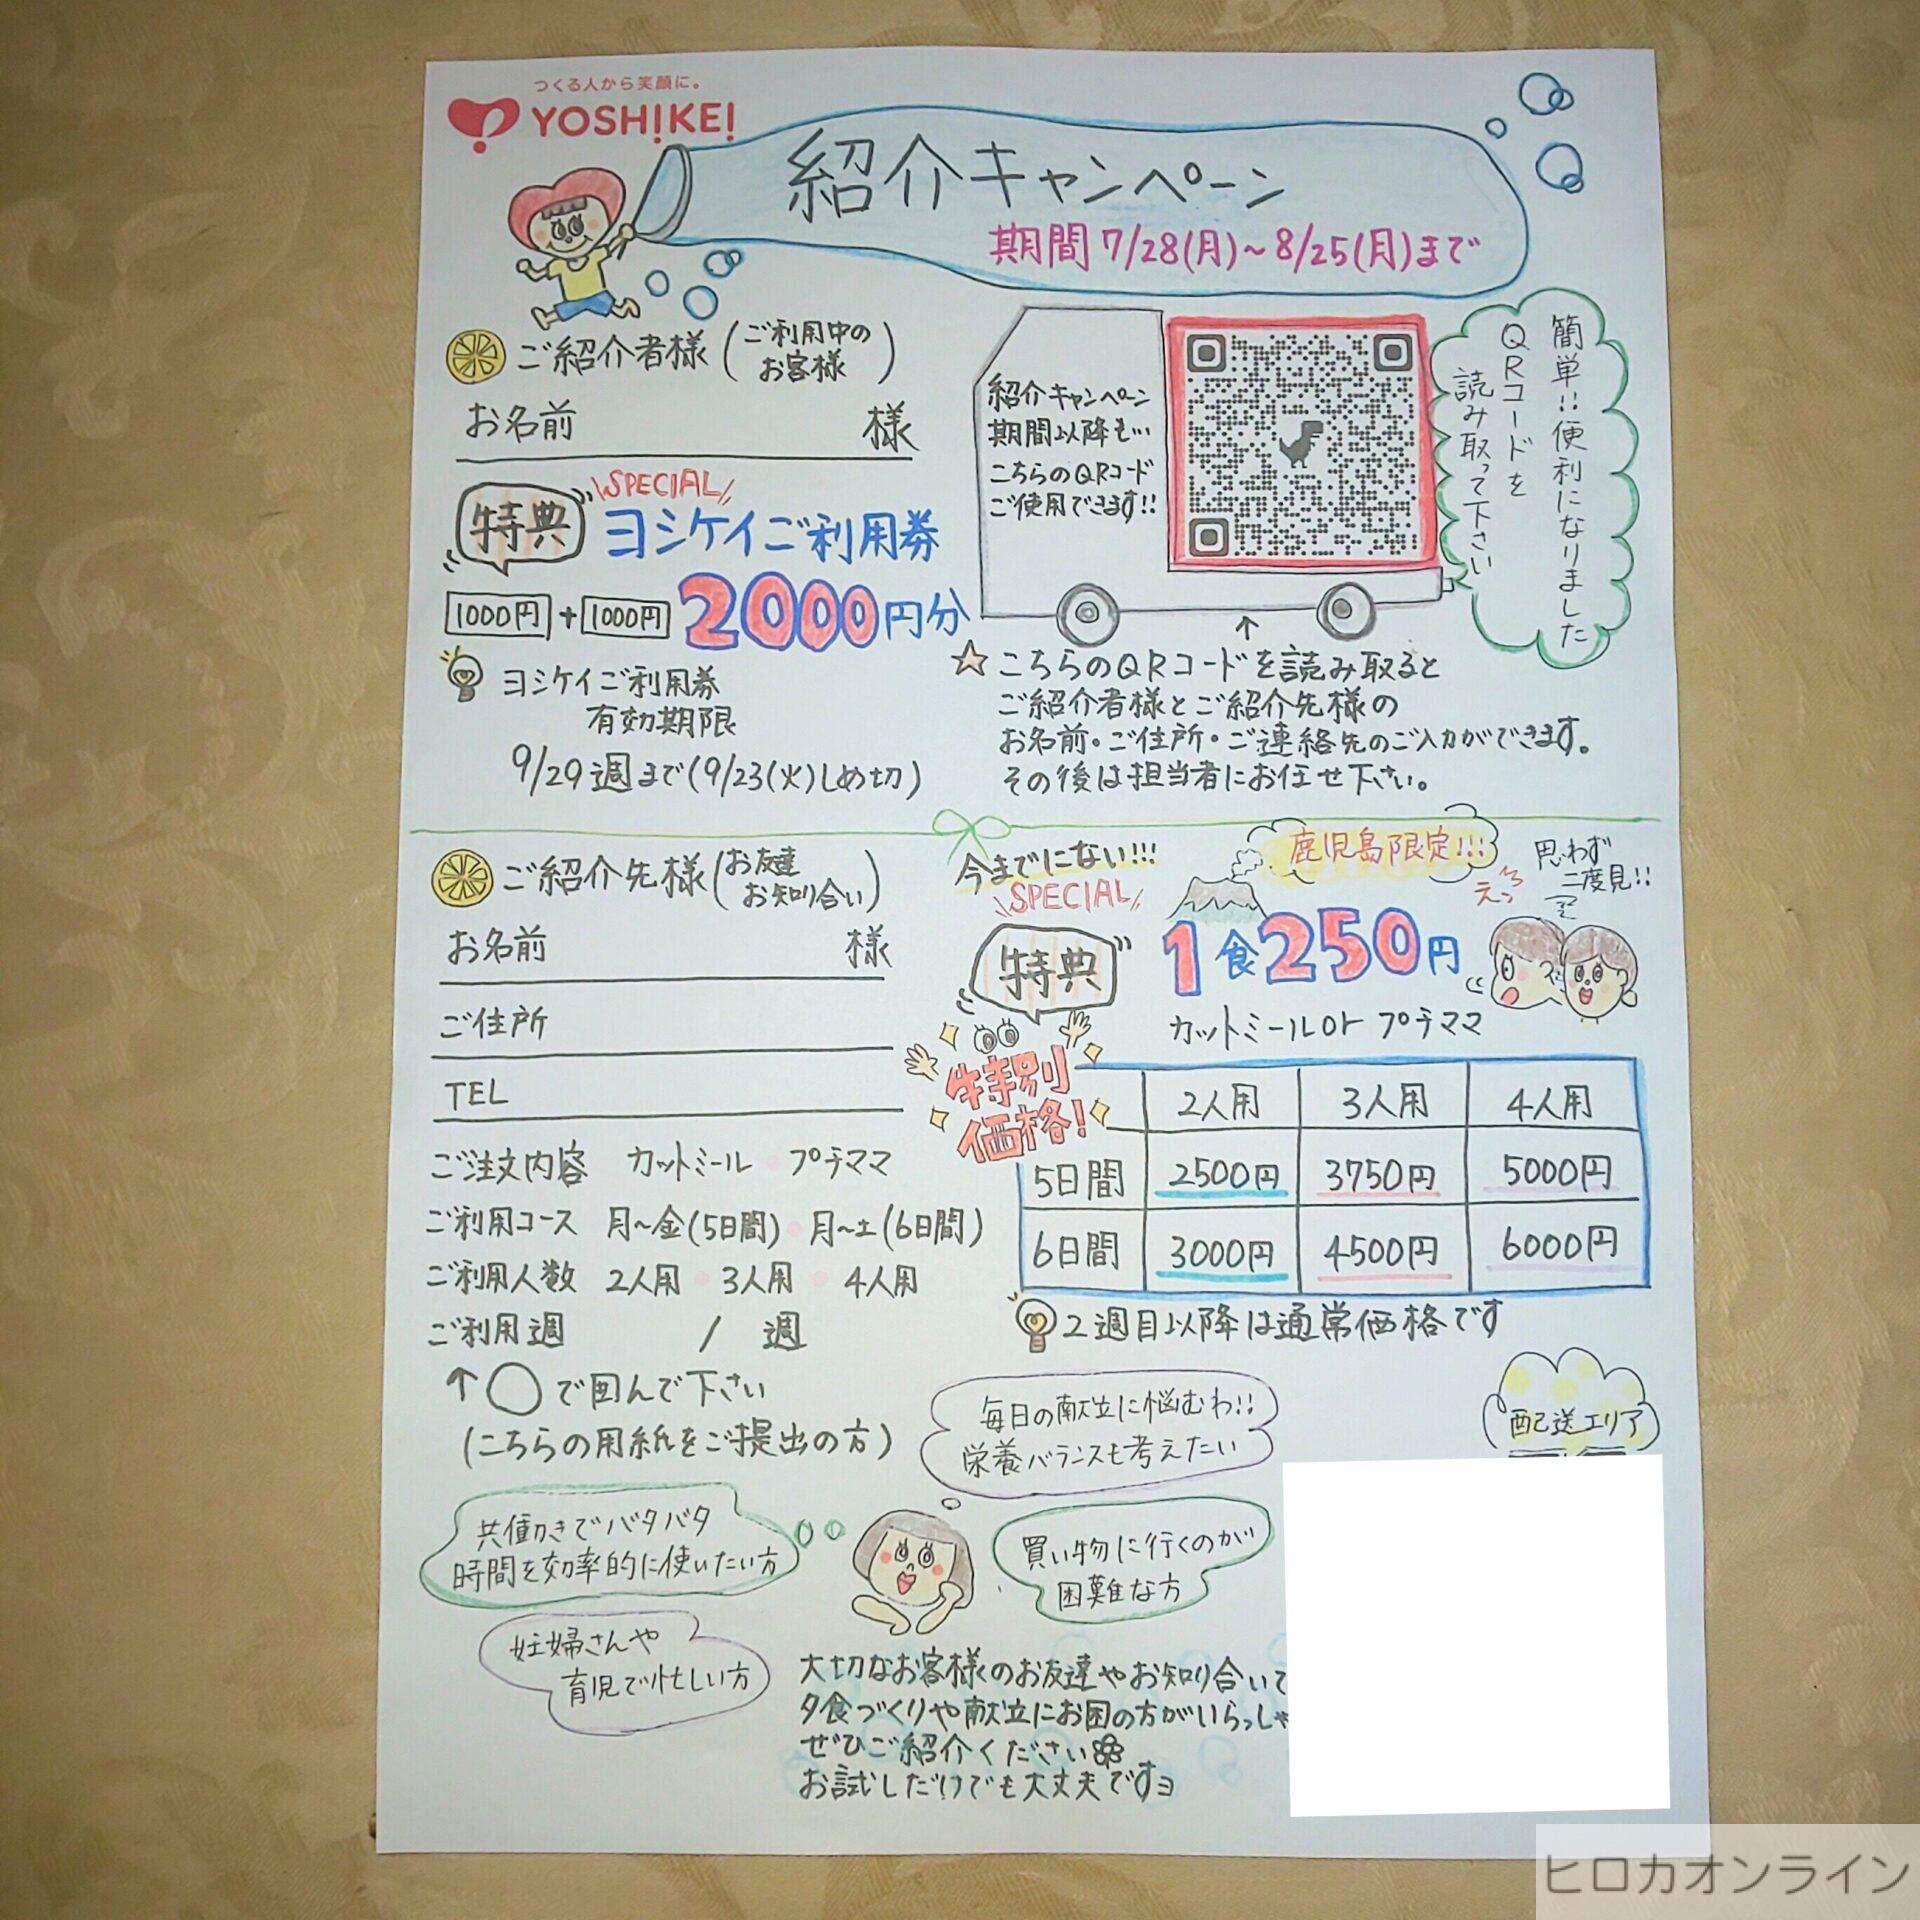 つくる人から笑顔に。
YOSH!KE!
紹介キャンペーン
期間 7/28(月)~8/25(月)まで
ご紹介者様(ご利用中の
お客様)
お名前 様
SPECIAL
特典 ヨシケイご利用券
1000円+1000円 2000円分
ヨシケイご利用券
有効期限
9/29週まで(9/23(火)しめ切)
紹介キャンペーン
期間以降も…
こちらのQRコード
ご使用できます!!
簡単!!便利になりました
QRコードを
読み取って下さい
☆こちらのQRコードを読み取ると
ご紹介者様とご紹介先様の
お名前・ご住所・ご連絡先のご入力ができます。
その後は担当者にお任せ下さい。
ご紹介先様(お友達
お知り合い)
お名前 様
ご住所
TEL
ご注文内容 カットミール・プチママ
ご利用コース 月~金(5日間)・月~土(6日間)
ご利用人数 2人用・3人用・4人用
ご利用週 / 週
↑○で囲んで下さい
(こちらの用紙をご提出の方)
今までにない!!!
SPECIAL
特典
鹿児島限定!!!
えっ
思わず
二度見!!
1食250円
カットミールorプチママ
特別
価格!
2人用 3人用 4人用
5日間 2500円 3750円 5000円
6日間 3000円 4500円 6000円
2週目以降は通常価格です
毎日の献立に悩むわ!!
栄養バランスも考えたい
配送エリア
共働きでバタバタ
時間を効率的に使いたい方
買い物に行くのが
困難な方
妊婦さんや
育児で忙しい方
大切なお客様のお友達やお知り合いで
夕食づくりや献立にお困の方がいらっしゃ
ぜひご紹介ください
お試しだけでも大丈夫ですヨ
ヒロカオンライン